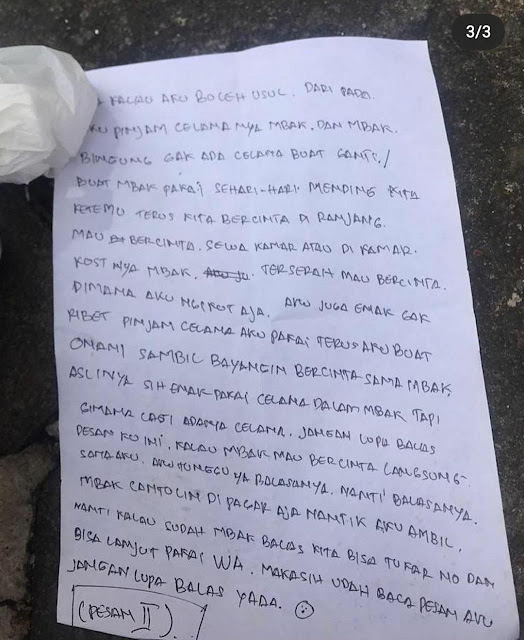 3/3
KALAU AKU BOLEH USUL. DARI PADA.
AKU PINJAM CELANA NYA MBAK. DAN MBAK.
BINGUNG GAK ADA CELANA BUAT GANTI./
BUAT MBAK PAKAI SEHARI-HARI. MENDING KITA
KETEMU TERUS KITA BERCINTA DI RANJANG.
MAU BERCINTA. SEWA KAMAR ATAU DI KAMAR.
KOST NYA MBAK. TERSERAH MAU BERCINTA.
DIMANA AKU NGIKUT AJA. AKU JUGA ENAK GAK
RIBET PINJAM CELANA AKU PAKAI TERUS AKU BUAT
ONANI SAMBIL BAYANGIN BERCINTA SAMA MBAK.
ASLINYA SIH ENAK PAKAI CELANA DALAM MBAK TAPI
GIMANA LAGI ADANYA CELANA. JANGAN LUPA BALAS
PESAN KU INI. KALAU MBAK MAU BERCINTA LANGSUNG-
SAMA AKU. AKU TUNGGU YA BALASANYA. NANTI BALASANYA.
MBAK CANTOLIN DI PAGAR AJA NANTIK AKU AMBIL.
NANTI KALAU SUDAH MBAK BALAS KITA BISA TUKAR NO DAN
BISA LANJUT PAKAI WA. MAKASIH UDAH BACA PESAN AKU
JANGAN LUPA BALAS YADA. ☺
(PESAN II)